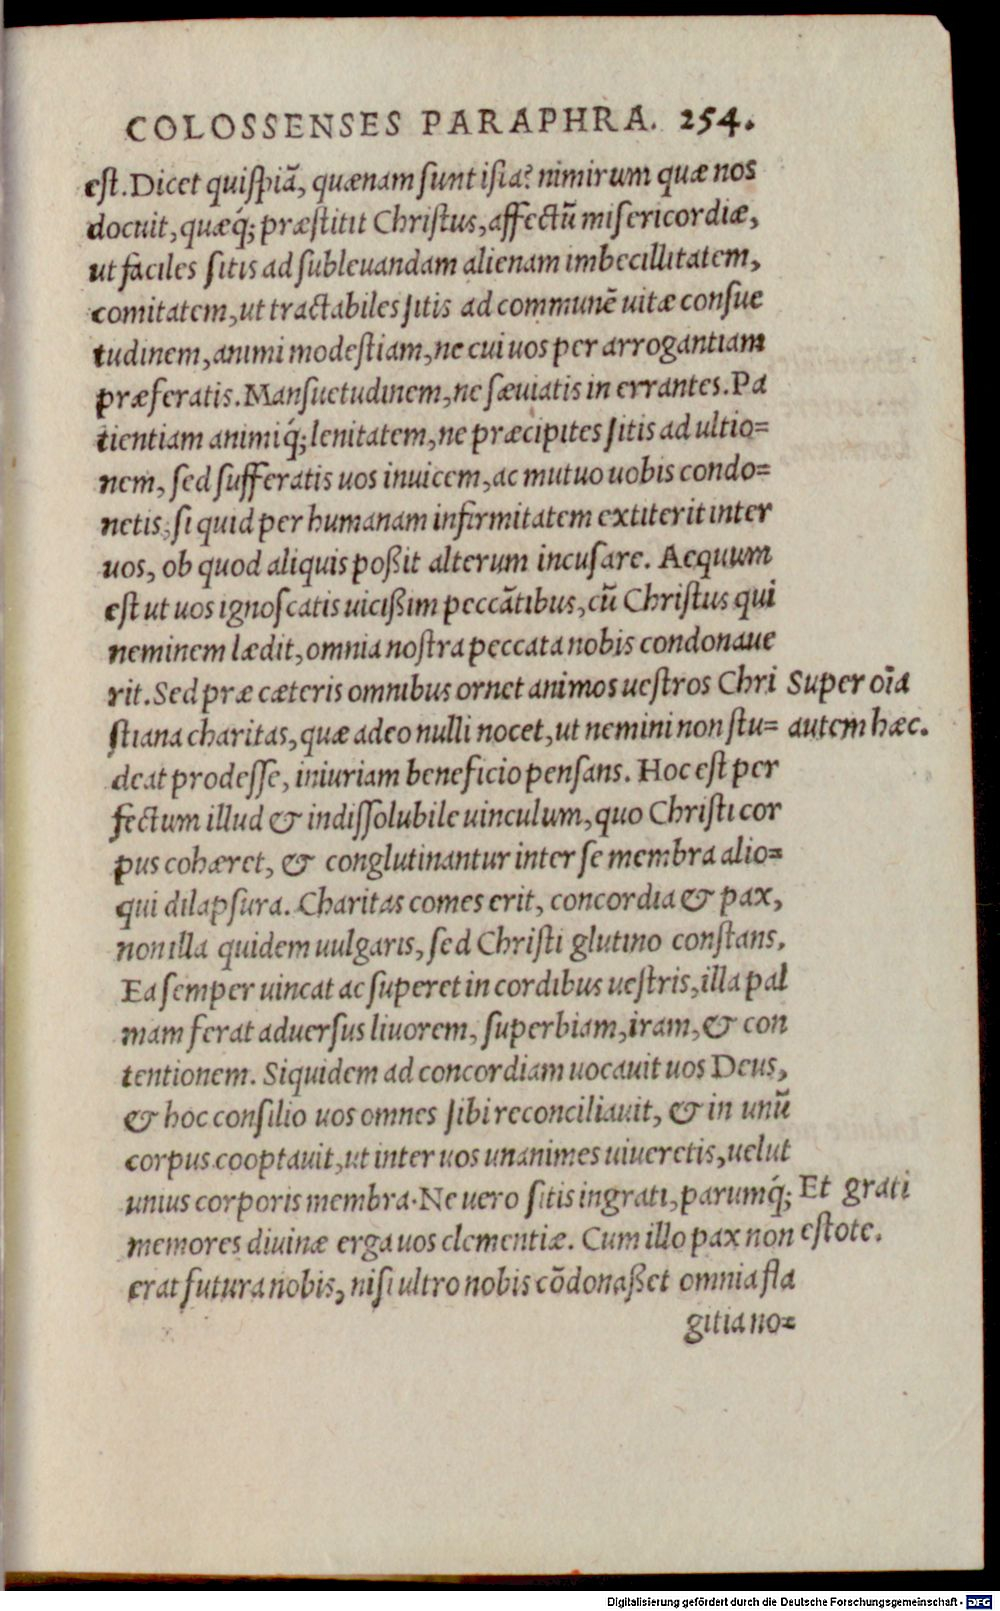 COLOSSENSES PARAPHRA. 254.
est. Dicet quispiã, quænam sunt ista? nimirum quæ nos
docuit, quæq́; præstitit Christus, affectũ misericordiæ,
ut faciles sitis ad subleuandam alienam imbecillitatem,
comitatem, ut tractabiles sitis ad communẽ uitæ consue
tudinem, animi modestiam, ne cui uos per arrogantiam
præferatis. Mansuetudinem, ne sæuiatis in errantes. Pa
tientiam animiq́; lenitatem, ne præcipites sitis ad ultio=
nem, sed sufferatis uos inuicem, ac mutuo uobis condo=
netis, si quid per humanam infirmitatem extiterit inter
uos, ob quod aliquis poßit alterum incusare. Aequum
est ut uos ignoscatis uicißim peccãtibus, cũ Christus qui
neminem lædit, omnia nostra peccata nobis condonaue
rit. Sed præ cæteris omnibus ornet animos uestros Chri
Super oĩa
stiana charitas, quæ adeo nulli nocet, ut nemini non stu=
autem hæc.
deat prodesse, iniuriam beneficio pensans. Hoc est per
fectum illud & indissolubile uinculum, quo Christi cor
pus cohæret, & conglutinantur inter se membra alio=
qui dilapsura. Charitas comes erit, concordia & pax,
non illa quidem uulgaris, sed Christi glutino constans.
Ea semper uincat ac superet in cordibus uestris, illa pal
mam ferat aduersus liuorem, superbiam, iram, & con
tentionem. Siquidem ad concordiam uocauit uos Deus,
& hoc consilio uos omnes sibi reconciliauit, & in unũ
corpus cooptauit, ut inter uos unanimes uiueretis, uelut
unius corporis membra. Ne uero sitis ingrati, parumq́;
Et grati
memores diuinæ erga uos clementiæ. Cum illo pax non
estote.
erat futura nobis, nisi ultro nobis cõdonaßet omnia fla
gitia no=
Digitalisierung gefördert durch die Deutsche Forschungsgemeinschaft - DFG